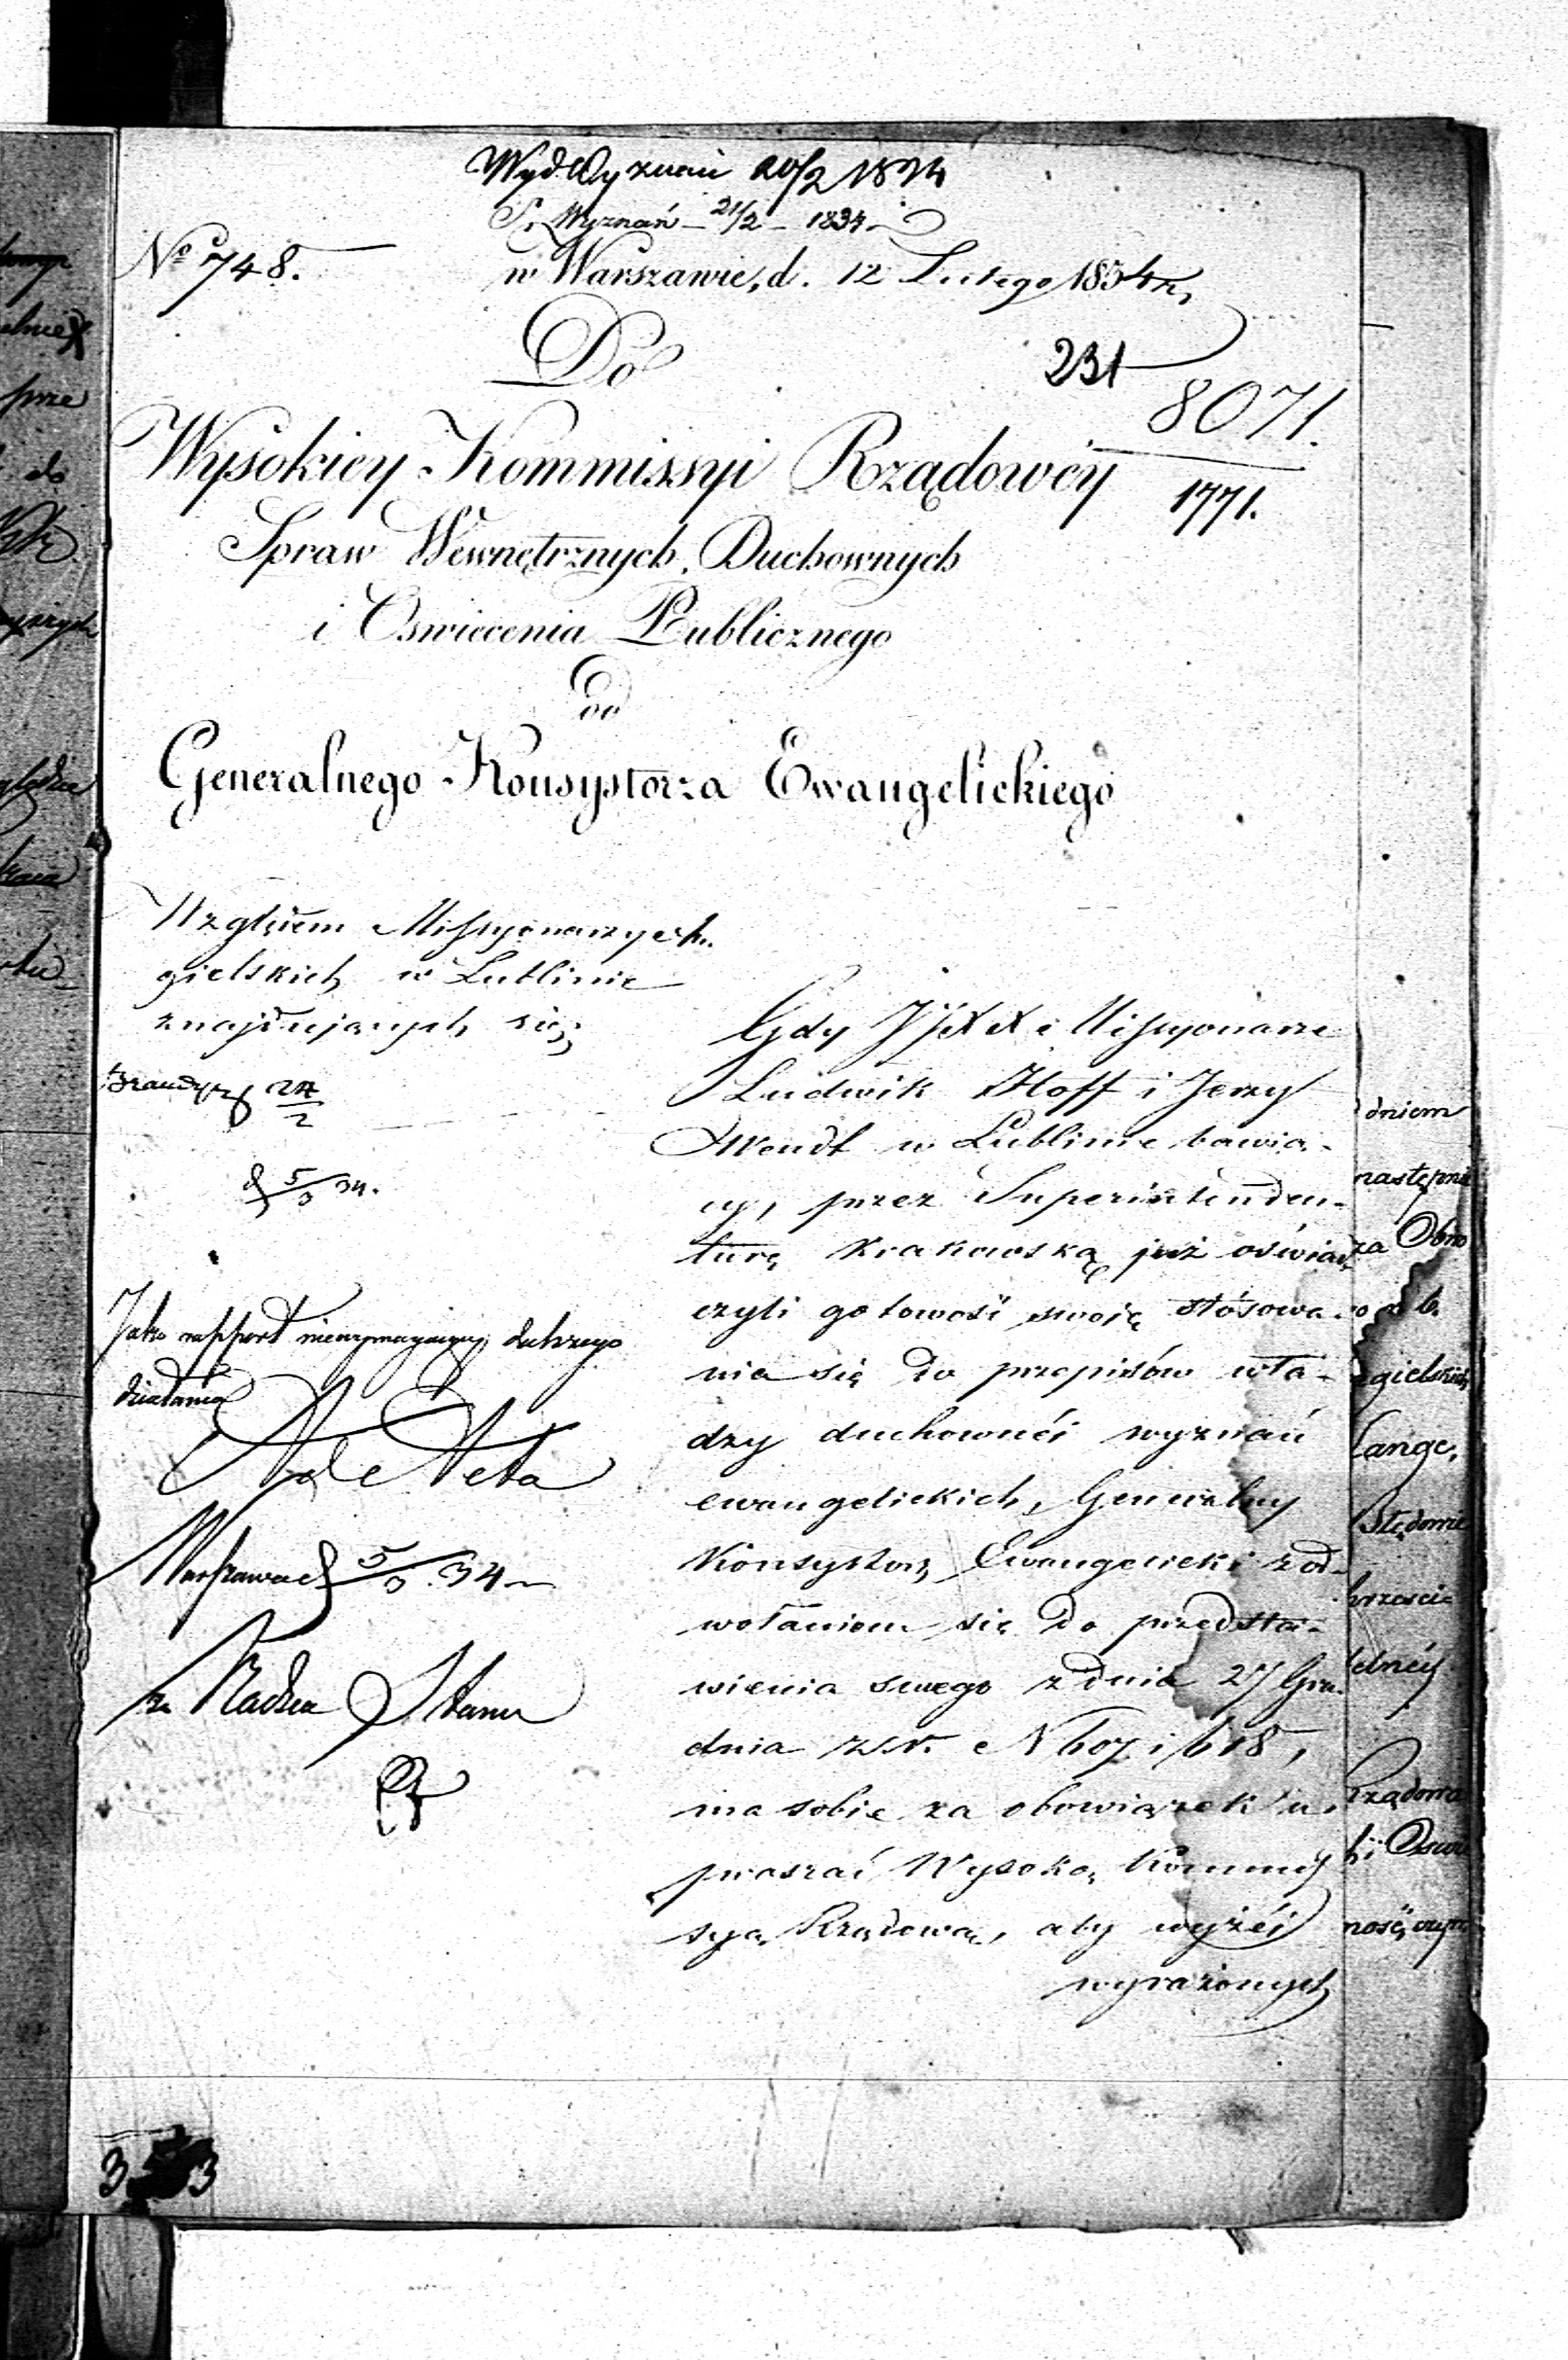 Wyd. Wyznań 20/2 1834
S. Wyznań – 21/2 – 1834
No 748.
w Warszawie, d. 12 Lutego 1834 r.
Do
231
8071.
1771.
Wysokiey Kommissyi Rządowéy
Spraw Wewnętrznych, Duchownych
i Oswiecenia Publicznego
od
Generalnego Konsystorza Ewangelickiego
Względem Missyonarzy
gielskich w Lublinie
znajdujących się;
24/2
d 5/3 34.
Jako rapport niewymagaiący dalszego
działania
ad Acta
Warszawa d 5/3 34
za Radca Stanu
Gdy JJXX Missyonarze
Ludwik Hoff i Jerzy
Wendt w Lublinie bawią-
cy, przez Superintenden-
turę Krakowską już oświad-
czyli gotowość swoię stósowa-
nia się do przepisów wła-
dzy duchownéi wyznań
ewangelickich, Generalny
Konsystorz Ewangelicki z od-
wołaniem się do przedsta-
wienia swego z dnia 27 Gru-
dnia z. r. N 607 i 618,
ma sobie za obowiązek u-
praszać Wysoką Kommis-
syą Rządową, aby wyżéi
wyrażonych
dniem
następnie
za
gielskich
Lange,
Rządowa
ność
prze
do
3 3